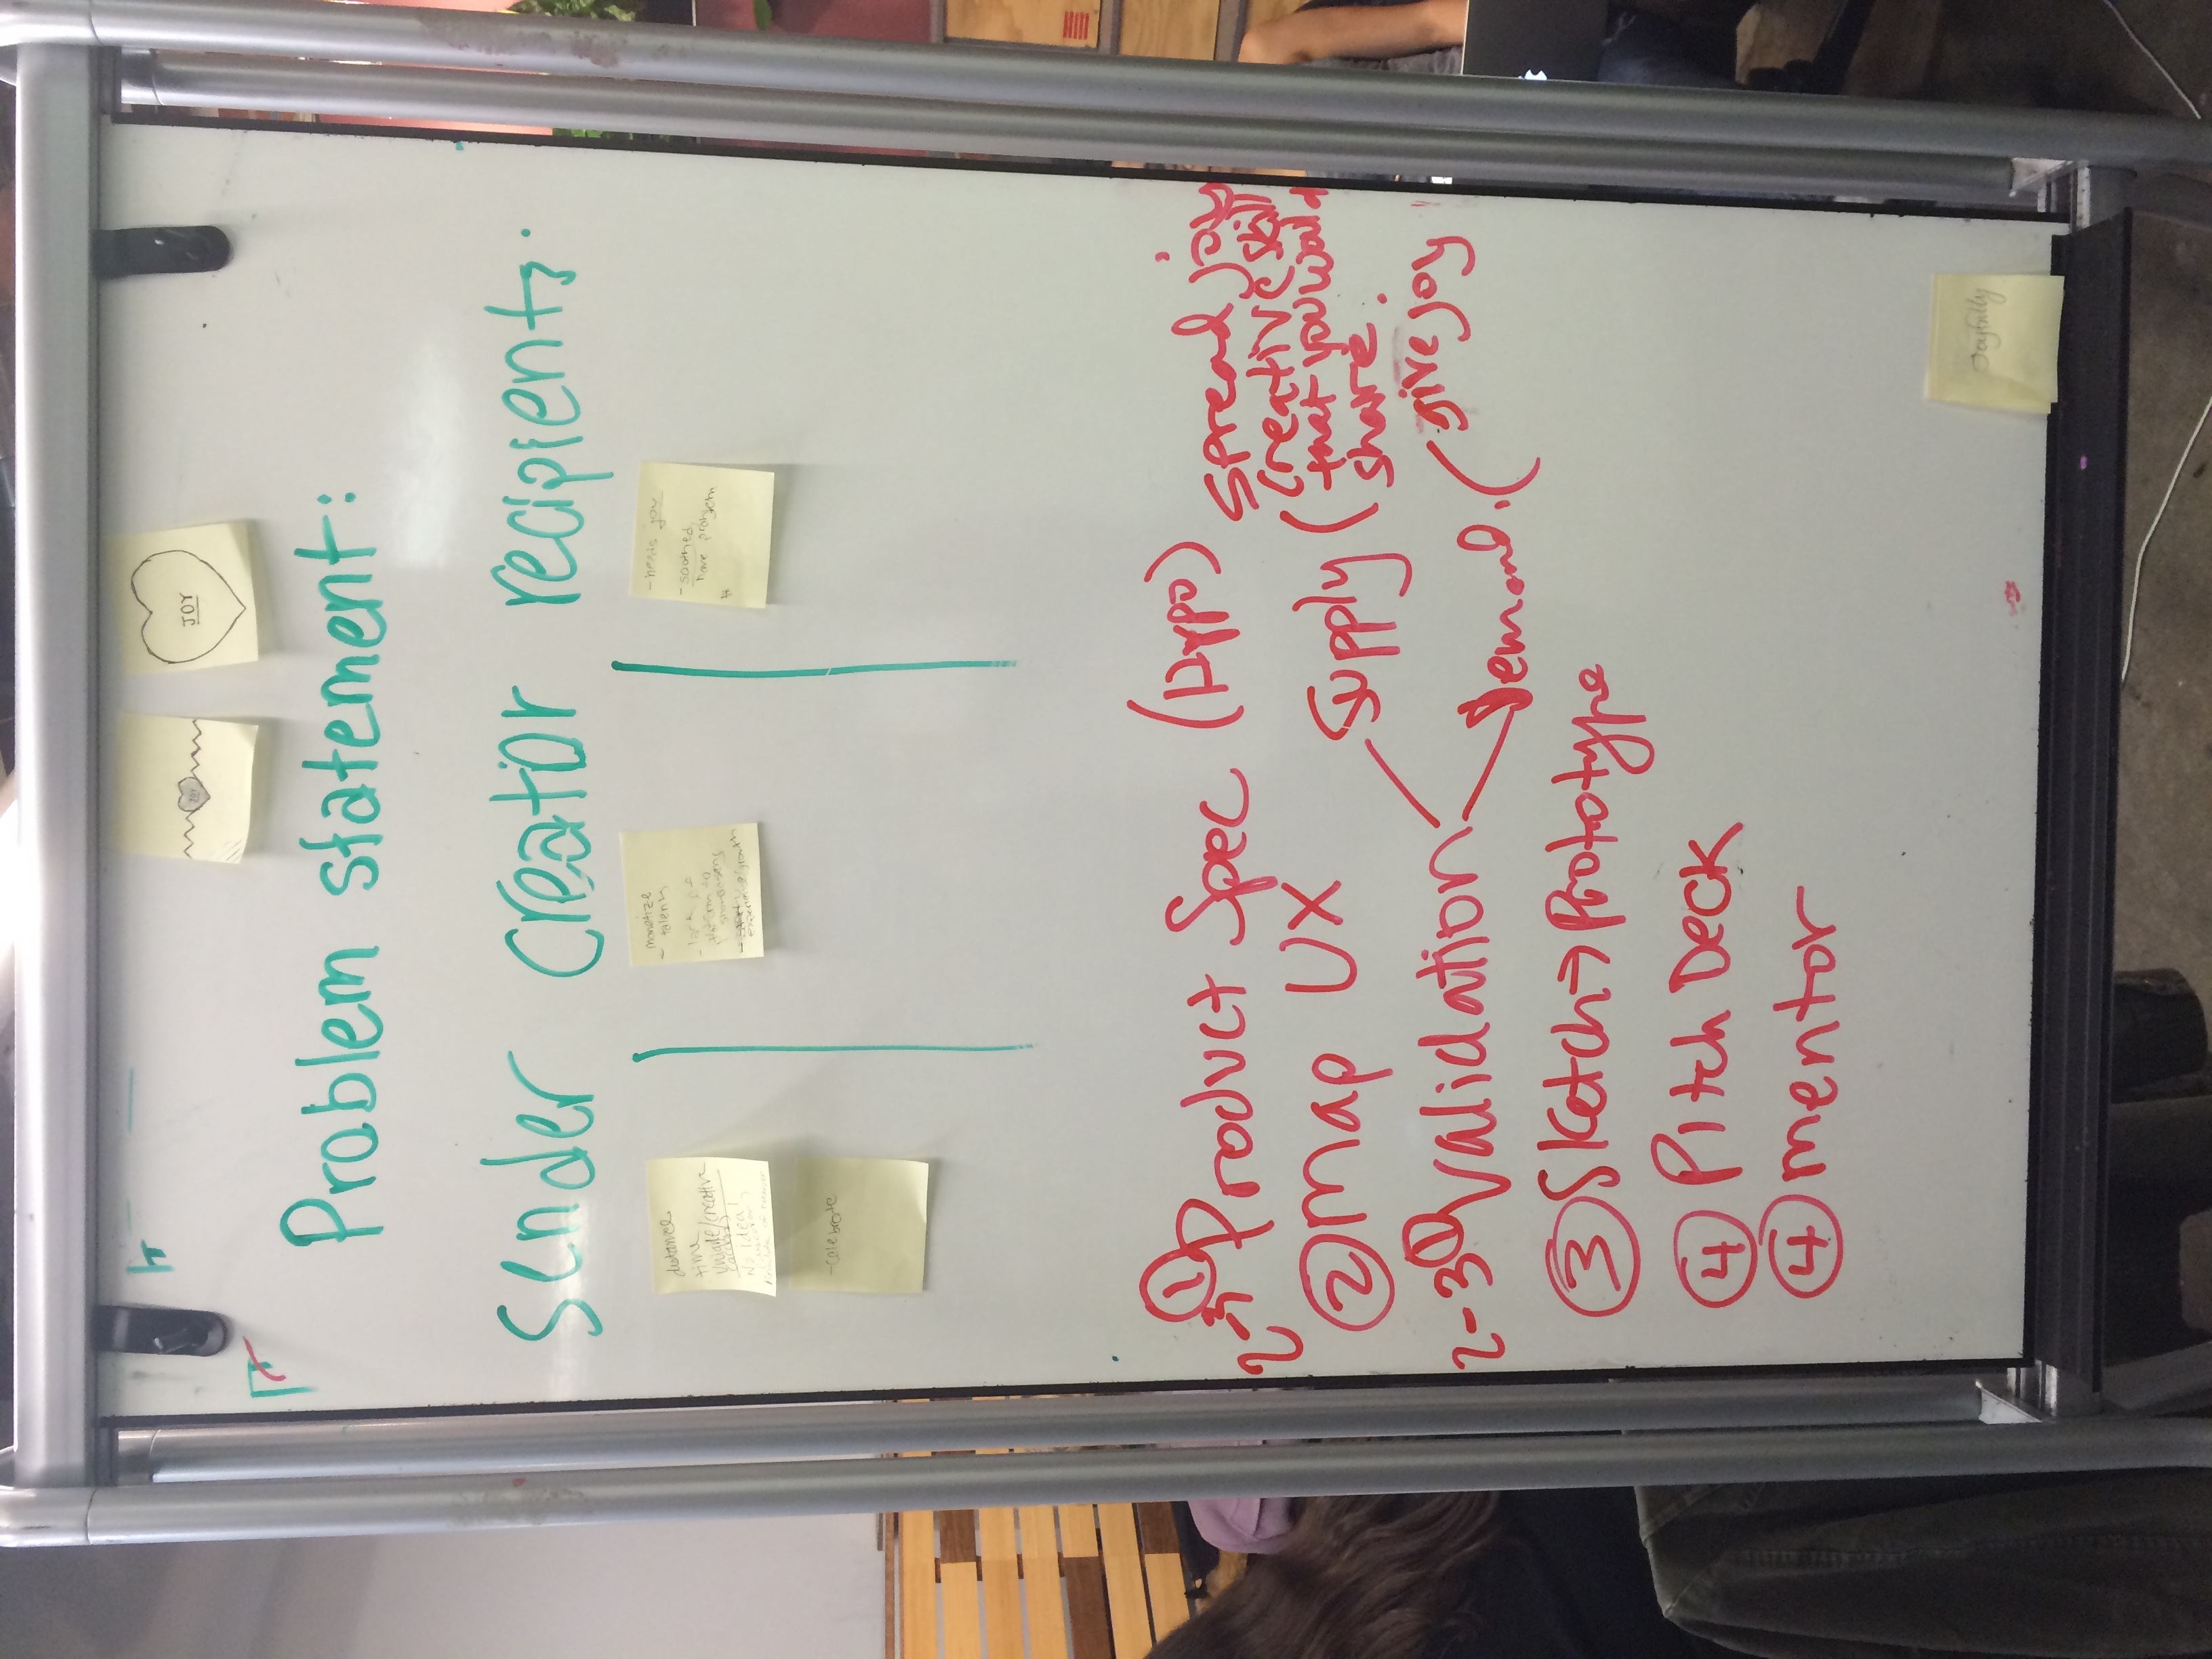 JOY
JOY
Problem statement:
sender creator recipients.
distance
time
unique/creative
No idea!
-celebrate
monetize
- talents
- lack of
platform to
experience/growth
- needs joy
- soothed,
have problem
2-3 ① Product Spec (Hypo)
② Map UX
2-3 ① Validation
Supply (spread joy
creative skill
that you would
share.
Demand. (give joy
③ Sketch → Prototype
④ Pitch Deck
④ mentor
Joyfully